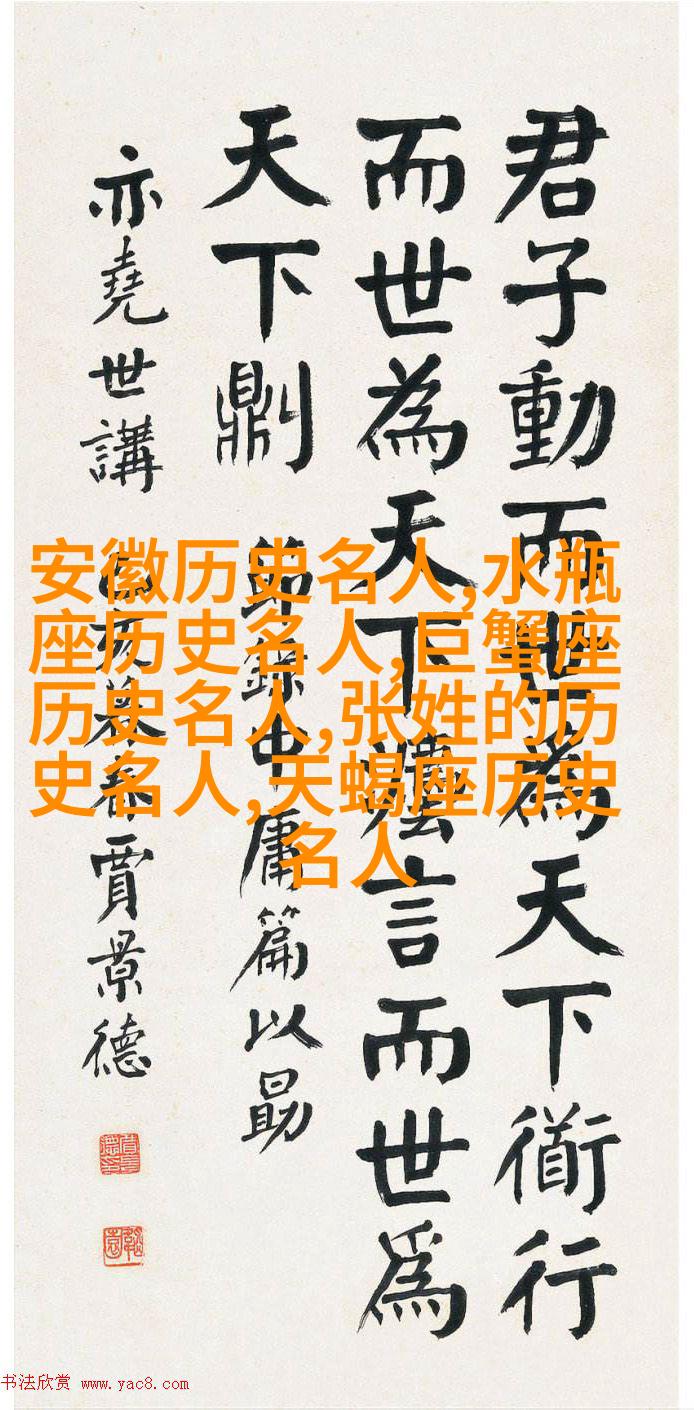 君子動而世為天下衜行
而世為天下灋言而世為
天下𠟭
節錄中庸篇以勗
亦堯世講 己亥暮春賈景德
安徽历史名人,水瓶
座历史名人,巨蟹座
历史名人,张姓的历
史名人,天蝎座历史
名人
书法欣赏 www.yac8.com